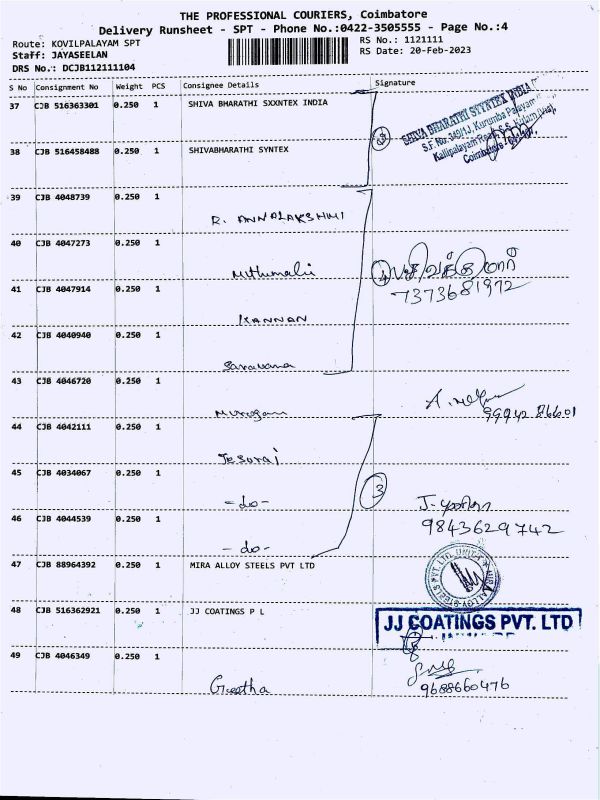 THE PROFESSIONAL COURIERS, Coimbatore
Delivery Runsheet - SPT - Phone No.:0422-3505555 - Page No.:4
Route: KOVILPALAYAM SPT
Staff: JAYASEELAN
DRS No.: DCJB112111104
RS No.: 1121111
RS Date: 20-Feb-2023
S No Consignment No Weight PCS Consignee Details Signature
37 CJB 516363301 0.250 1 SHIVA BHARATHI SXXNTEX INDIA
SHIVA BHARATHI SYNTEX INDIA
S.F. No: 349/1J, Kurumba Palayam
Kallipalayam Road, S.S. Kulam (Via),
Coimbatore
38 CJB 516458488 0.250 1 SHIVABHARATHI SYNTEX
39 CJB 4048739 0.250 1
R. ANNALAKSHMI
40 CJB 4047273 0.250 1
Mithumalli
4
7373681972
41 CJB 4047914 0.250 1
KANNAN
42 CJB 4040940 0.250 1
Saravana
43 CJB 4046720 0.250 1
Murugan
99942 86601
44 CJB 4042111 0.250 1
Jesuraj
45 CJB 4034067 0.250 1
-do-
3
9843629742
46 CJB 4044539 0.250 1
-do-
47 CJB 88964392 0.250 1 MIRA ALLOY STEELS PVT LTD
48 CJB 516362921 0.250 1 JJ COATINGS P L
JJ COATINGS PVT. LTD
49 CJB 4046349 0.250 1
Geetha
9688660476